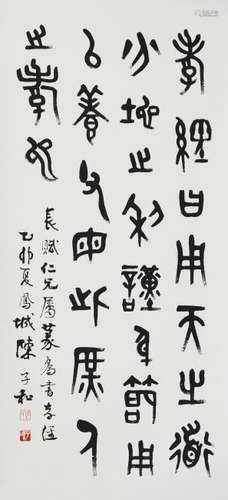 孝經曰用天之道
分地之利謹身節用
以養父母此庶人
之孝也
長賦仁兄屬篆為書孝經
乙卯夏鳳城陳子和